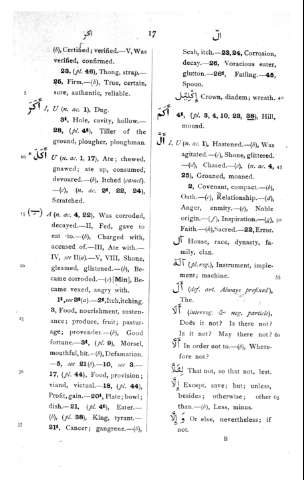 اكر
17
ال
(b), Certified; verified.—V, Was
verified, confirmed.
23, (pl. 46), Thong, strap.—
25, Firm.—(b), True, certain,
sure, authentic, reliable.
أكر I, U (n. ac. 1), Dug.
3⁴, Hole, cavity, hollow.—
28, (pl. 4⁵), Tiller of the
ground, plougher, ploughman.
أكل U (n. ac. 1, 17), Ate; chewed,
gnawed; ate up, consumed,
devoured.—(b), Itched (
—(c), (n. ac. 2⁴, 22, 24),
Scratched.
A (n. ac. 4, 22), Was corroded,
decayed.—II, Fed, gave to
eat to.—(b), Charged with,
accused of.—III, Ate with.—
IV, see II(a).—V, VIII, Shone,
gleamed, glistened.—(b), Be-
came corroded.—(c) [Min], Be-
came vexed, angry with.
Itch, itching.
3, Food, nourishment, susten-
ance; produce, fruit; pastur-
age; provender.—(b), Good
fortune.—3⁴, (pl. 9), Morsel,
mouthful, bit.—(b), Defamation.
—5, see 21(b).—10, see 3.—
17, (pl. 44), Food, provision;
viand, victual.—18, (pl. 44),
Profit, gain.—20⁴, Plate; bowl;
dish.—21, (pl. 4⁵), Eater.—
(b), (pl. 38), King, tyrant.—
21⁴, Cancer; gangrene.—(b),
Scab, itch.—23, 24, Corrosion,
decay.—26, Voracious eater,
glutton.—26⁴, Failing.—45,
Spoon.
إكليل Crown, diadem; wreath.
أكم 4⁴, (pl. 3, 4, 10, 23, 38), Hill,
mound.
أل I, U (n. ac. 1), Hastened.—(b), Was
agitated.—(c), Shone, glittered.
—(e), Chased.—(n. ac. 4,
25), Groaned, moaned.
2, Covenant, compact.—(b),
Oath.—(c), Relationship.—(d),
Anger, enmity.—(e), Noble
origin.—(f), Inspiration.—(g),
Faith.—(h), Sacred.—22, Error.
آل House, race, dynasty, fa-
mily, clan.
آلة (pl. reg.), Instrument, imple-
ment; machine.
ال (def. art. Always prefixed),
The.
ألا (interrog. أ- neg. particle),
Does it not? Is there not?
Is it not? May there not?
ألا In order not to.—(b), Where-
fore not?
That not, so that not, lest.
إلا Except, save; but; unless,
besides; otherwise; other
than.—(b), Less, minus.
وإلا Or else, nevertheless; if
not.
B